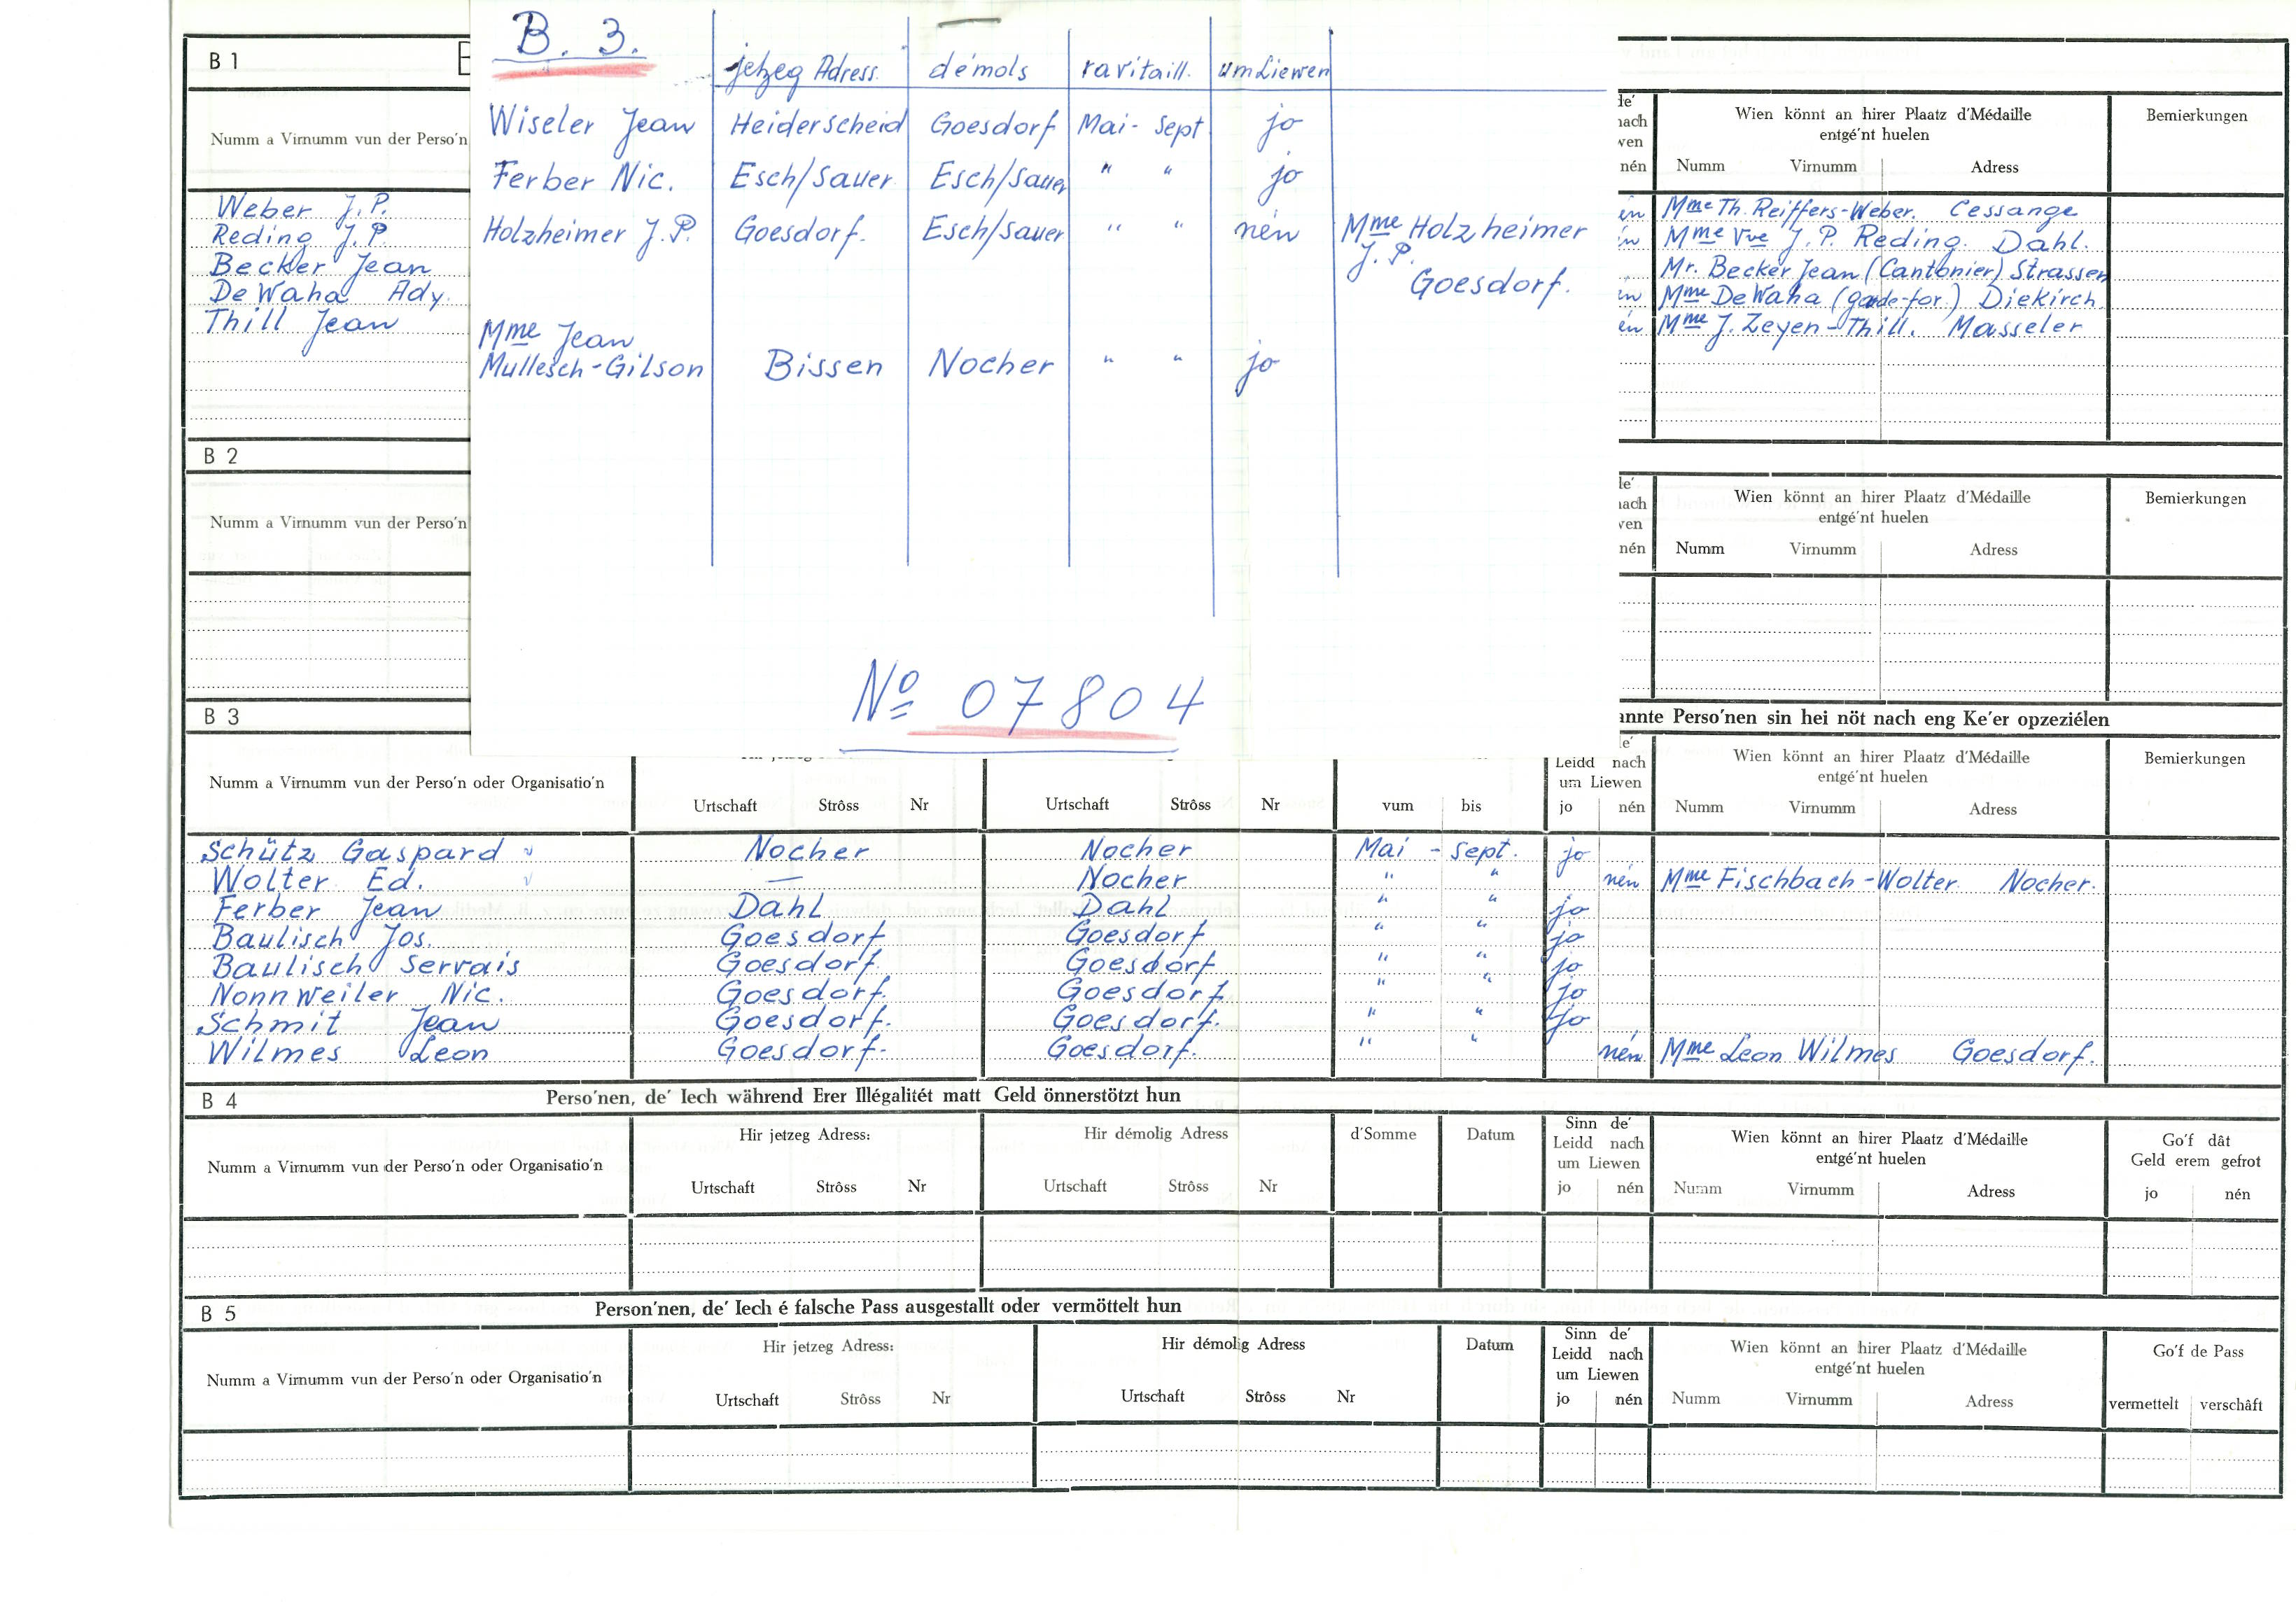 B. 3.
jetzeg Adress. démols ravitaill. um Liewen
Wiseler Jean Heiderscheid Goesdorf Mai - Sept jo
Ferber Nic. Esch/Sauer Esch/Sauer " " jo
Holzheimer J.P. Goesdorf. Esch/Sauer " " nén Mme Holzheimer
J.P.
Goesdorf.
Mme Jean
Mullesch-Gilson Bissen Nocher " " jo
No 07804
B 1
Numm a Virnumm vun der Perso'n
nach
nén
Wien könnt an hirer Plaatz d'Médaille
entgé'nt huelen
Numm Virnumm Adress
Bemierkungen
Weber J.P. Mme Th. Reiffers-Weber. Cessange
Reding J.P. Mme Vve J.P. Reding. Dahl.
Becker Jean Mr. Becker Jean (Cantonier) Strassen
De Waha Ady. Mme De Waha (garde-for.) Diekirch
Thill Jean Mme J. Zeyen-Thill. Masseler
B 2
Numm a Virnumm vun der Perso'n
nén
Wien könnt an hirer Plaatz d'Médaille
entgé'nt huelen
Numm Virnumm Adress
Bemierkungen
B 3
annte Perso'nen sin hei nöt nach eng Ke'er opzeziélen
Numm a Virnumm vun der Perso'n oder Organisatio'n
Urtschaft Strôss Nr
Urtschaft Strôss Nr
vum bis
Leidd nach
um Liewen
jo nén
Wien könnt an hirer Plaatz d'Médaille
entgé'nt huelen
Numm Virnumm Adress
Bemierkungen
Schütz Gaspard Nocher Nocher Mai - Sept. jo
Wolter Ed. — Nocher " " nén Mme Fischbach-Wolter Nocher.
Ferber Jean Dahl Dahl " " jo
Baulisch Jos. Goesdorf Goesdorf " " jo
Baulisch Servais Goesdorf. Goesdorf " " jo
Nonnweiler Nic. Goesdorf. Goesdorf " " jo
Schmit Jean Goesdorf. Goesdorf. " " jo
Wilmes Leon Goesdorf. Goesdorf. " " nén Mme Leon Wilmes Goesdorf.
B 4 Perso'nen, de' Iech während Erer Illégalitét matt Geld önnerstötzt hun
Numm a Virnumm vun der Perso'n oder Organisatio'n
Hir jetzeg Adress:
Urtschaft Strôss Nr
Hir démolig Adress
Urtschaft Strôss Nr
d'Somme Datum
Sinn de'
Leidd nach
um Liewen
jo nén
Wien könnt an hirer Plaatz d'Médaille
entgé'nt huelen
Numm Virnumm Adress
Go'f dât
Geld erem gefrot
jo nén
B 5 Person'nen, de' Iech é falsche Pass ausgestallt oder vermöttelt hun
Numm a Virnumm vun der Perso'n oder Organisatio'n
Hir jetzeg Adress:
Urtschaft Strôss Nr
Hir démolig Adress
Urtschaft Strôss Nr
Datum
Sinn de'
Leidd nach
um Liewen
jo nén
Wien könnt an hirer Plaatz d'Médaille
entgé'nt huelen
Numm Virnumm Adress
Go'f de Pass
vermettelt verschâft